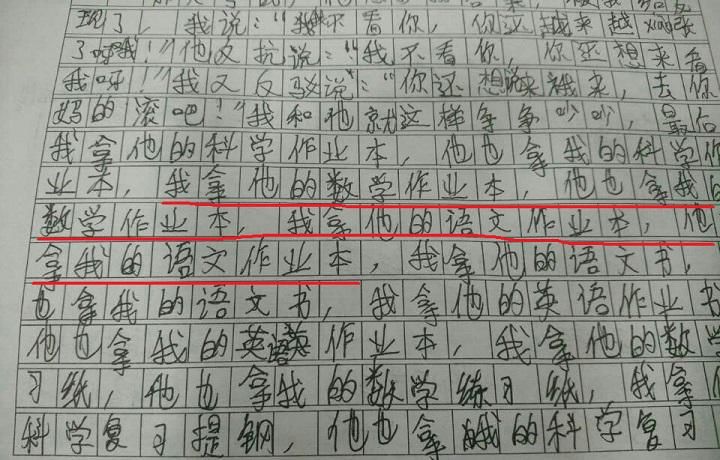 现了，我说：“我不看你，你还越来越xiāo张
了呀！”他又抗说：“我不看你，你还想来看
我呀！”我又反驳说：“你还想说来我来，去你
妈的滚吧！”我和他就这样争争吵吵，最后
我拿他的科学作业本，他也拿我的科学作
业本，我拿他的数学作业本，他也拿我的
数学作业本，我拿他的语文作业本，他
拿我的语文作业本，我拿他的语文书，
也拿我的语文书，我拿他的英语作业书
他也拿我的英语作业本，我拿他的数学
习纸，他也拿我的数学练习纸，我拿
科学复习提钢，他也拿我的科学复习